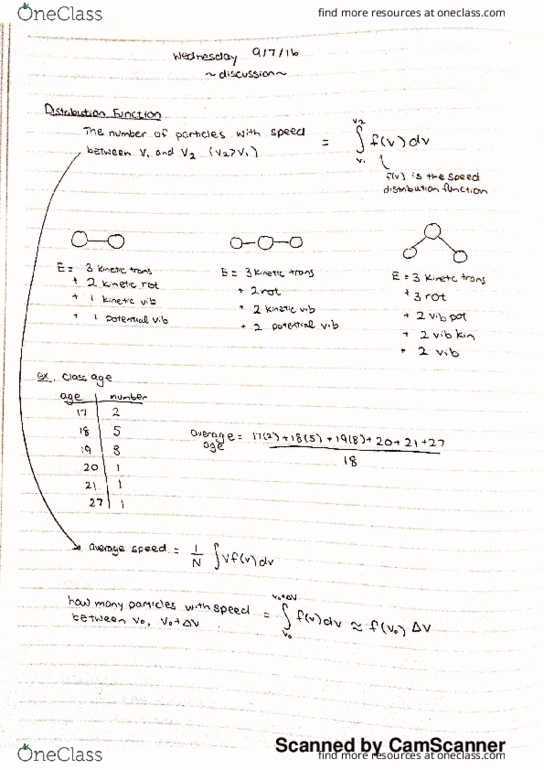 OneClass
find more resources at oneclass.com
Wednesday 9/7/16
~discussion~
Distribution Function
The number of particles with speed
between V₁ and V₂ (V₂>V₁)
= ∫ f(v)dv
V₂
V₁
f(v) is the speed
distribution function
E = 3 kinetic trans
+ 2 kinetic rot
+ 1 kinetic vib
+ 1 potential vib
E = 3 kinetic trans
+ 2 rot
+ 2 kinetic vib
+ 2 potential vib
E = 3 kinetic trans
+ 3 rot
+ 2 vib pot
+ 2 vib kin
+ 2 vib
ex. class age
age number
17 2
18 5
19 8
20 1
21 1
27 1
average age = 17(2)+18(5)+19(8)+20+21+27
18
average speed = 1/N ∫ vf(v)dv
how many particles with speed
between V₀, V₀+ΔV
= ∫ f(v)dv ≈ f(V₀) ΔV
V₀+ΔV
V₀
Scanned by CamScanner
OneClass
find more resources at oneclass.com